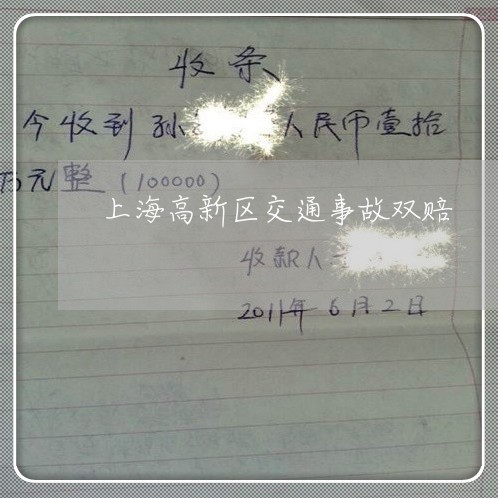 收条
今收到孙 人民币壹拾
万元整(100000)
上海高新区交通事故双赔
收款人
2011年6月2日